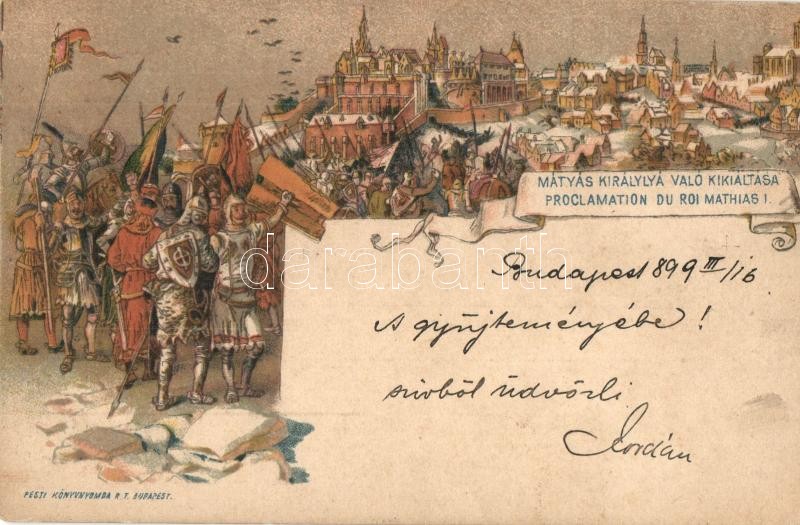 MÁTYÁS KIRÁLYLYÁ VALÓ KIKIÁLTÁSA
PROCLAMATION DU ROI MATHIAS I.
Budapest 899 III/16
A gyűjteményébe!
szivből üdvözli
Jordán
darabanth.com
PESTI KÖNYVNYOMDA R. T. BUDAPEST.